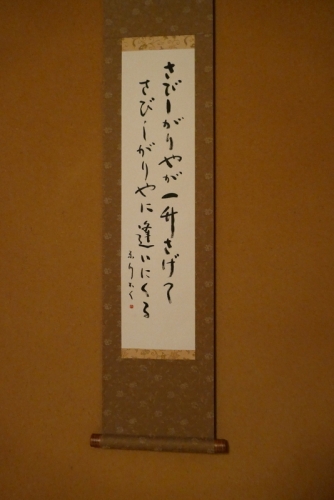 さびしがりやが一升さげて
さびしがりやに逢いにくる